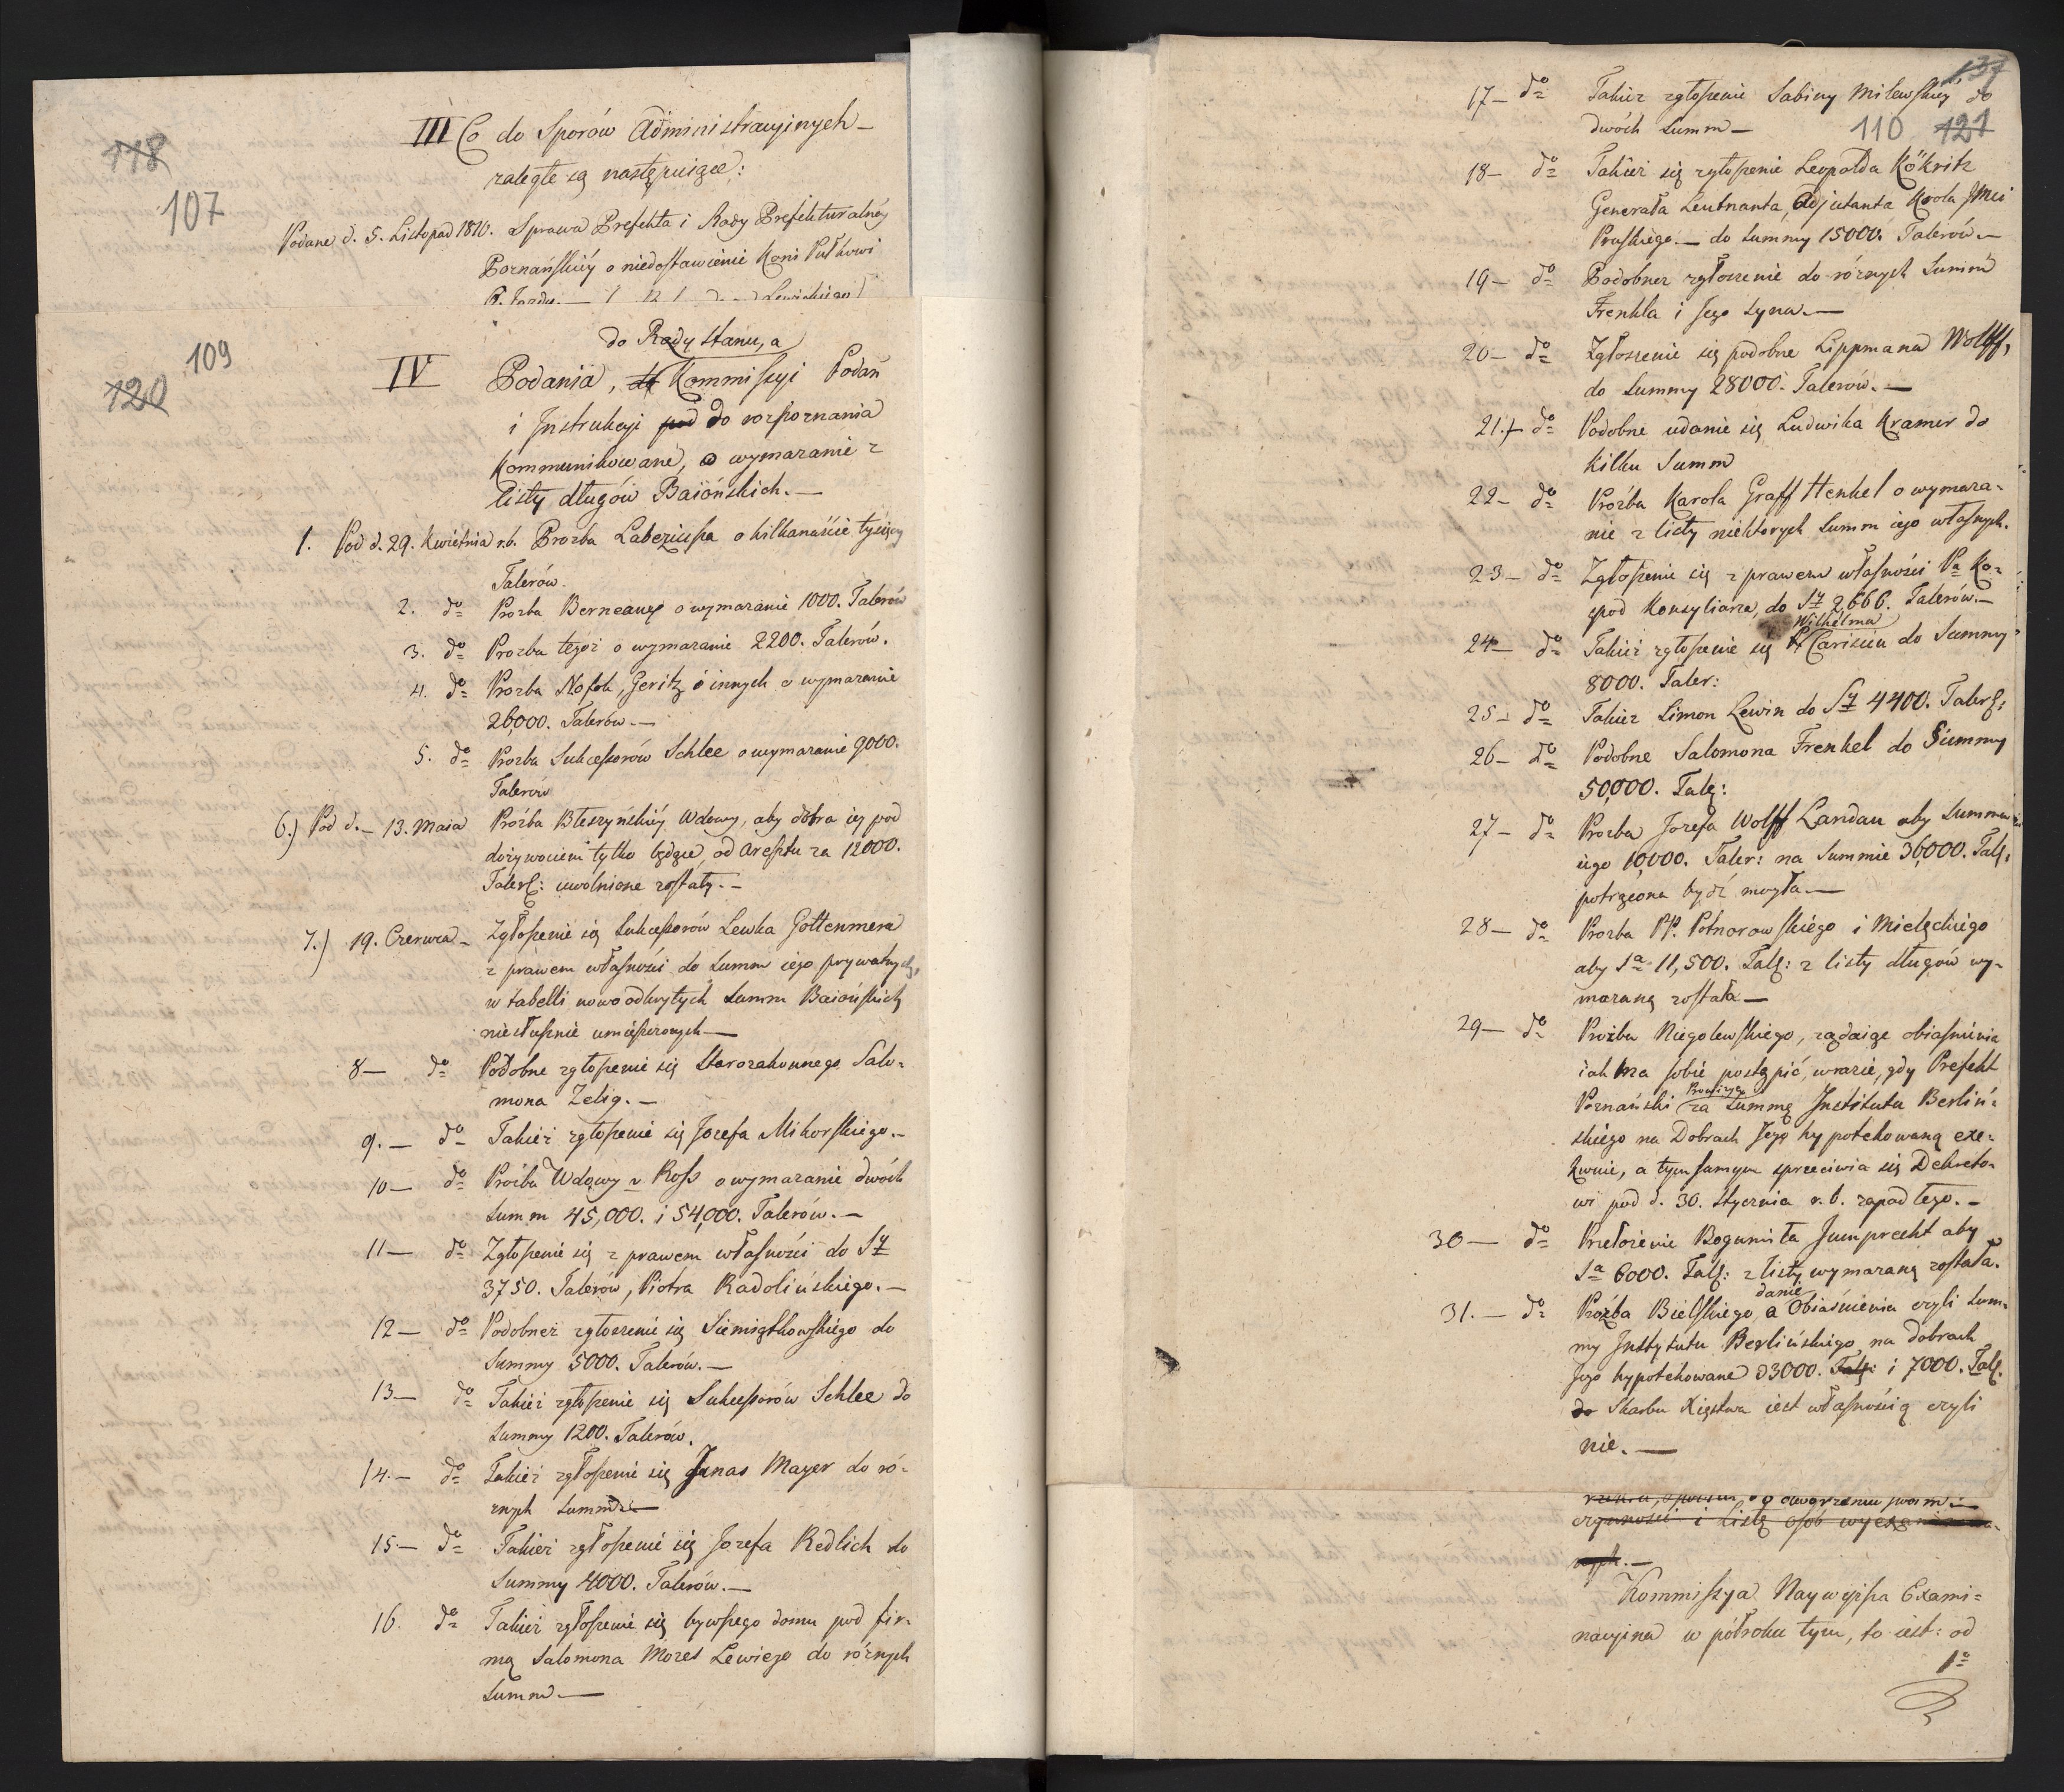 118
107
III Co do Sporów Administracyinych —
zaległe są następuiące:
Podane d. 5. Listopad 1810. Sprawa Prefekta i Rady Prefekturalnéy
Poznańskiéy o niedostawienie Koni Pułkowi
109
120
do Rady stanu, a
IV Podania, Kommissyi Podań
i Instrukcyi pod do rozpoznania
Kommunikowane, o wymazanie z
listy długów Baiońskich. —
1. Pod d. 29. Kwietnia r.b. Prozba Labeziusza o kilkanaście tysięcy
Talerów.
2. do Prozba Berneaux o wymazanie 1000. Talerów
3. do Prozba tegoż o wymazanie 2200. Talerów.
4. do Prozba Nosok, Geritz i innych o wymazanie
26,000. Talerów. —
5. do Prozba Sukcessorów Schlee o wymazanie 9000.
Talerów
6.) Pod d. — 13. Maia Prózba Błeszyńskiéy Wdowy, aby dobra iéy pod
dożywociem tylko będące, od aresztu za 12000.
Taler: uwolnione zostały. —
7.) 19. Czerwca — Zgłoszenie się Sukcessorów Lewka Gottenmera
z prawem własności do summ iego prywatnych,
w tabelli nowo odkrytych summ Baiońskich
niesłusznie umieszczonych —
8 — do Podobne zgłoszenie się Starozakonnego Salo-
mona Zelig. —
9. — do Takież zgłoszenie się Jozefa Mikorskiego. —
10 — do Proźba Wdowy v Ross o wymazanie dwóch
summ 45,000. i 54,000. Talerów. —
11 — do Zgłoszenie się z prawem własności do Sy
3750. Talerów, Piotra Radolińskiego. —
12 — do Podobneż zgłoszenie się Siemiątkowskiego do
Summy 5000. Talerów. —
13 — do Takież zgłoszenie się Sukcessorów Schlee do
Summy 1200. Talerów.
14. — do Takież zgłoszenie się Jonas Mayer do ró-
znych summ —
15 — do Takież zgłoszenie się Jozefa Redlich do
Summy 4000. Talerów. —
16. do Takież zgłoszenie się bywszego domu pod fir-
mą Salomona Mozes Lewiego do róznych
Summ —
137
17 — do Takież zgłoszenie Sabiny Milewskiéy do
dwóch summ — 110 121
18 — do Takież się zgłoszenie Leopolda Kökritz
Generała Leutnanta, Adjutanta Krola JMci
Pruskiego. — do summy 15000. Talerów. —
19 — do Podobnez zgłoszenie do róznych Summ
Frenkla i Jego syna. —
20 — do Zgłoszenie się podobne Lippmana Wolff,
do Summy 28000. Talerów. —
21. do Podobne udanie się Ludwika Kramer do
kilku Summ
22 — do Proźba Karola Graff Henkel o wymaza-
nie z listy niektorych Summ iego własnych.
23 — do Zgłoszenie się z prawem własności Pa Ko-
spod Konsyliarza, do Sy 2,666. Talerów. —
Wilhelma
24 — do Takież zgłoszenie się Carisien do Summy
8000. Taler:
25 — do Takież Simon Lewin do Sy 4400. Taler:
26 — do Podobne Salomona Frenkel do Summy
50,000. Tal:
27 — do Prozba Jozefa Wolff Landau aby Summa
iego 10,000. Taler: na Summie 36,000. Tal:
potrącona bydź mogła —
28 — do Prozba PP. Potworowskiego i Mielęckiego
aby Sa 11,500. Tal: z listy długów wy-
mazaną została —
29 — do Proźba Niegolewskiego, ządaiąc obiaśnienia
iak ma sobie postąpić, wrazie, gdy Prefekt
Prowizyą
Poznański za Summę Instituta Berliń-
skiego na Dobrach Jego hypotekowaną exe-
kwuie, a tym samym sprzeciwia się Dekreto-
wi pod d. 30. Stycznia r.b. zapadłego. —
30 — do Przełożenie Bogumiła Jumprecht aby
Sa 6000. Tal: z listy wymazaną została.
danie
31. — do Proźba Bielskiego, o Obiaśnienia czyli Sum-
my Instytutu Berlińskiego na dobrach
Jego hypotekowane 3000. Tal: i 7000. Tal:
do Skarbu Xięstwa iest własnością czyli
nie. —
czynności i Listę osób
Kommissya Naywyższa Exami-
nacyina w półroku tym, to iest: od
1o